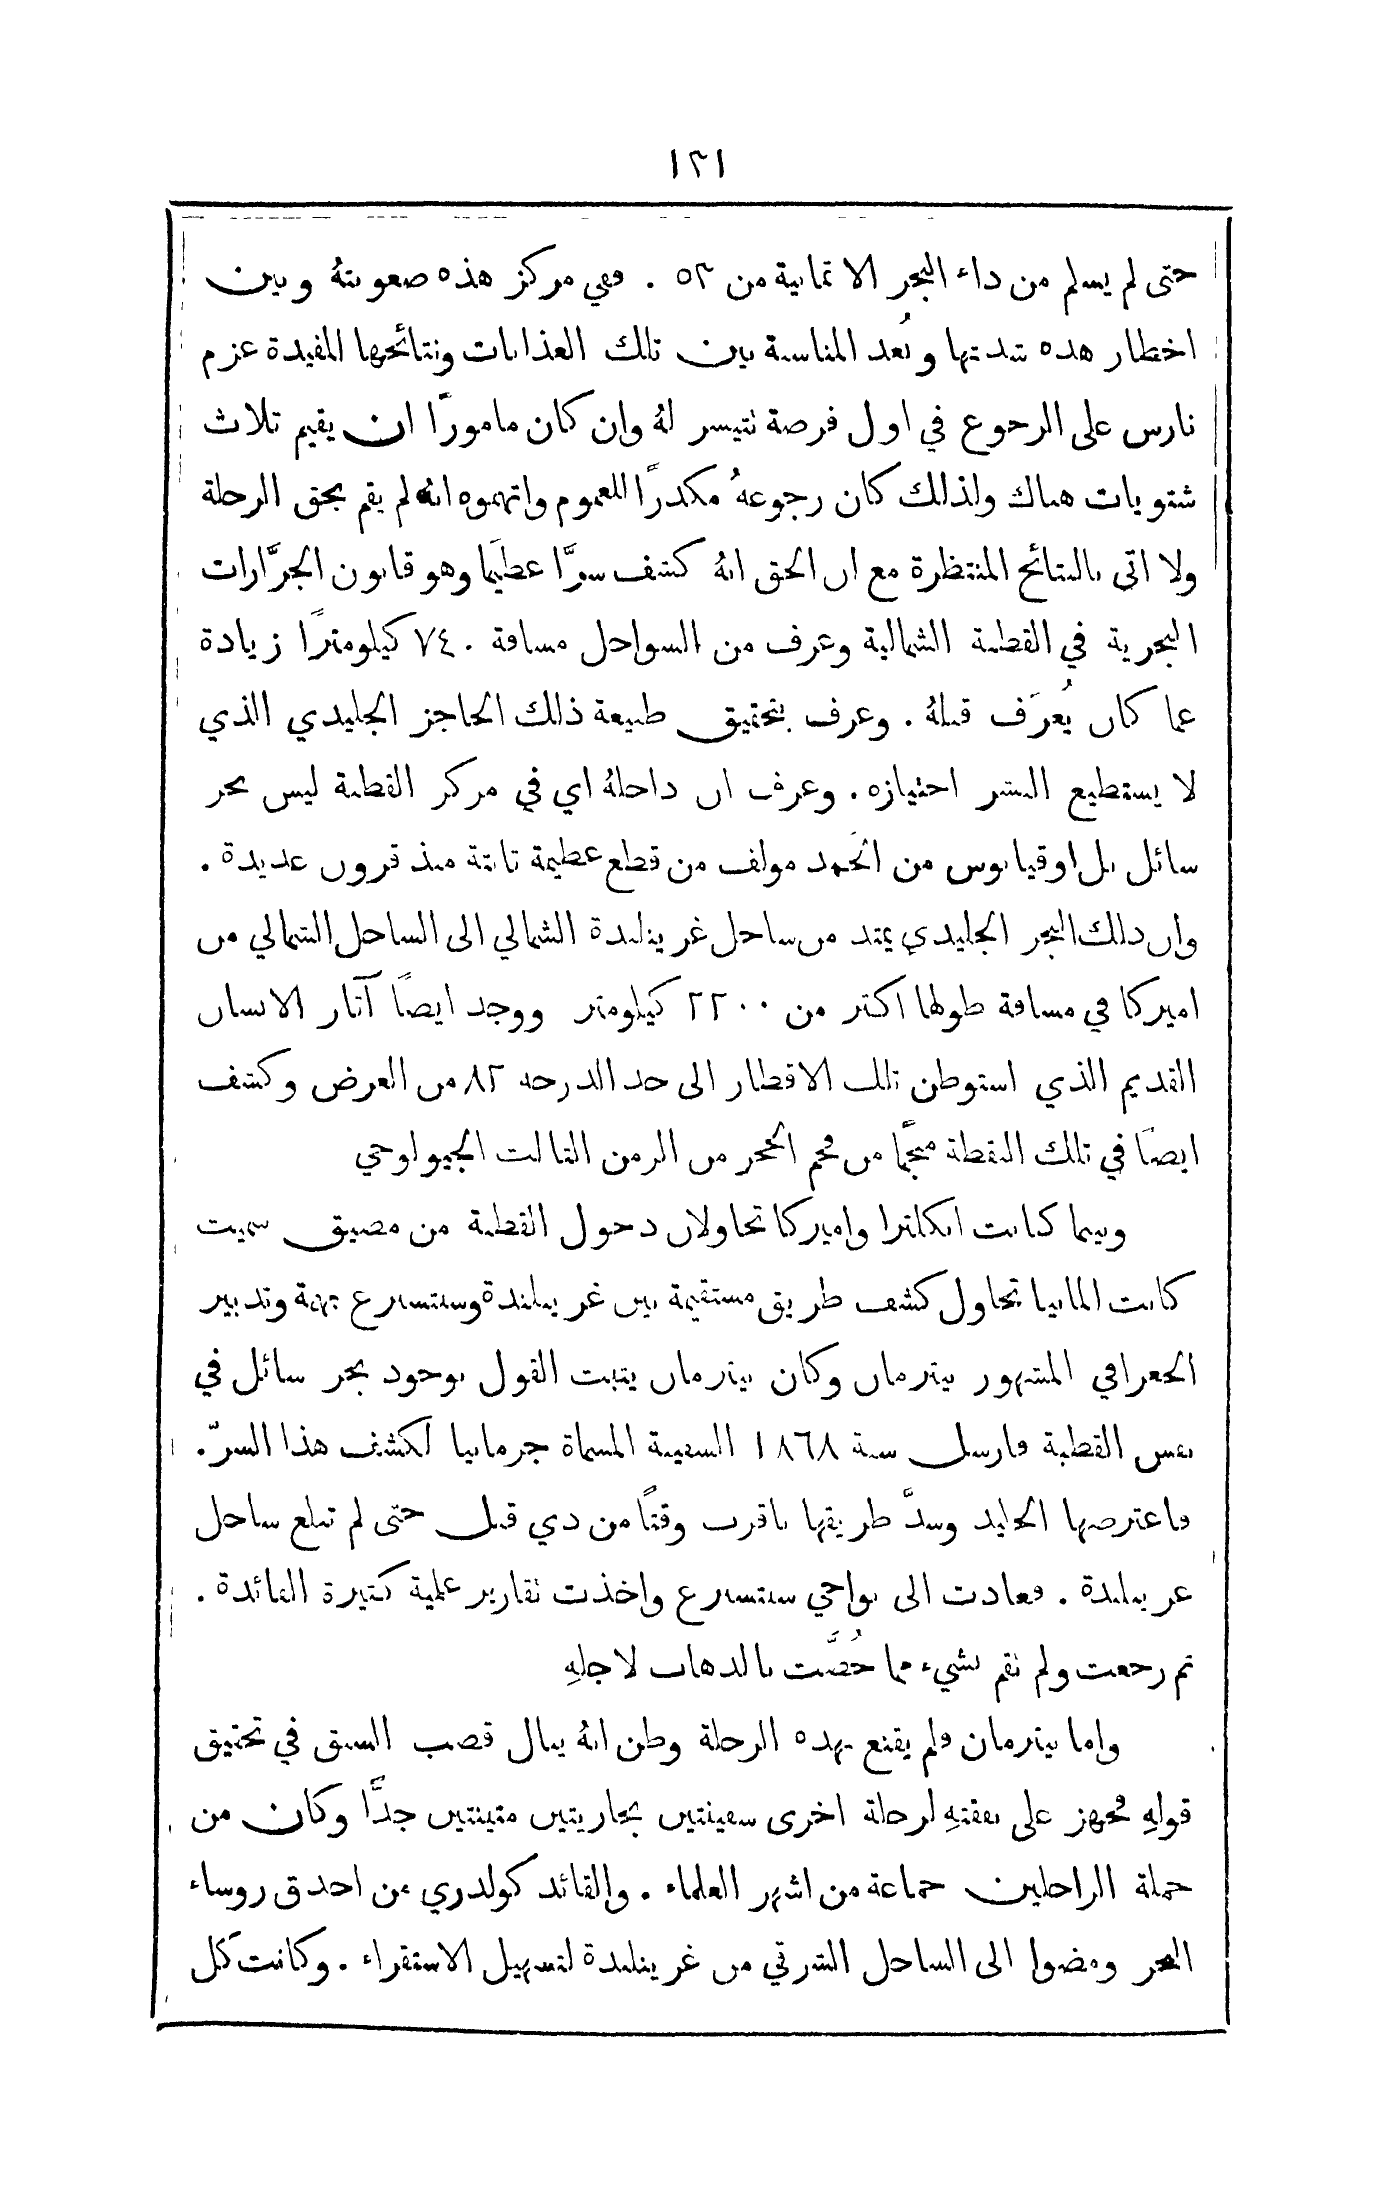 ١٣١
حتى لم يسلم من داء البحر الا ثمانية من ٥٣ . ففي مركز هذه صعوبتهُ وبين
اخطار هذه شدتها وبُعد المناسبة بين تلك العذابات ونتائجها المفيدة عزم
نارس على الرجوع في اول فرصة تتيسر لهُ وان كان مامورًا ان يقيم ثلاث
شتويات هناك ولذلك كان رجوعهُ مكدرًا للعموم واتهموه انهُ لم يقم بحق الرحلة
ولا اتى بالنتائج المنتظرة مع ان الحق انهُ كشف سرًّا عظيمًا وهو قانون الجرَّارات
البحرية في القطبة الشمالية وعرف من السواحل مسافة ٧٤٠ كيلومترًا زيادة
عما كان يُعرَف قبلهُ . وعرف بتحقيق طبيعة ذلك الحاجز الجليدي الذي
لا يستطيع البشر اجتيازه . وعرف ان داخلهُ اي في مركز القطبة ليس بحر
سائل بل اوقيانوس من الجَمد مولف من قطع عظيمة ثابتة منذ قرون عديدة .
وان ذلك البحر الجليدي يمتد من ساحل غرينلندة الشمالي الى الساحل الشمالي من
اميركا في مسافة طولها اكثر من ٢٢٠٠ كيلومتر ووجد ايضًا آثار الانسان
القديم الذي استوطن تلك الاقطار الى حد الدرجه ٨٢ من العرض وكشف
ايضًا في تلك النقطة منجمًا من فحم الحجر من الزمن الثالث الجيولوجي
وبينما كانت انكلترا واميركا تحاولان دخول القطبة من مضيق سميث
كانت المانيا تحاول كشف طريق مستقيمة بين غرينلندة وسبتسبرغ بهمة وتدبير
الجغرافي المشهور بيترمان وكان بيترمان يثبت القول بوجود بحر سائل في
نفس القطبة فارسل سنة ١٨٦٨ السفينة المسماة جرمانيا لكشف هذا السرّ .
فاعترضها الجليد وسدَّ طريقها باقرب وقتًا من ذي قبل حتى لم تبلغ ساحل
غرينلندة . فعادت الى نواحي سبتسبرغ واخذت تقارير علمية كثيرة الفائدة .
ثم رجعت ولم تقم بشيء مما خُصَّت بالذهاب لاجلهِ
واما بيترمان فلم يقنع بهذه الرحلة وظن انهُ ينال قصب السبق في تحقيق
قولهِ فجهز على نفقتهِ لرحلة اخرى سفينتين بخاريتين متينتين جدًّا وكان من
جملة الراحلين جماعة من اشهر العلماء . والقائد كولدوي من احذق روساء
البحر ومضوا الى الساحل الشرقي من غرينلندة لتسهيل الاستقراء . وكانت كل